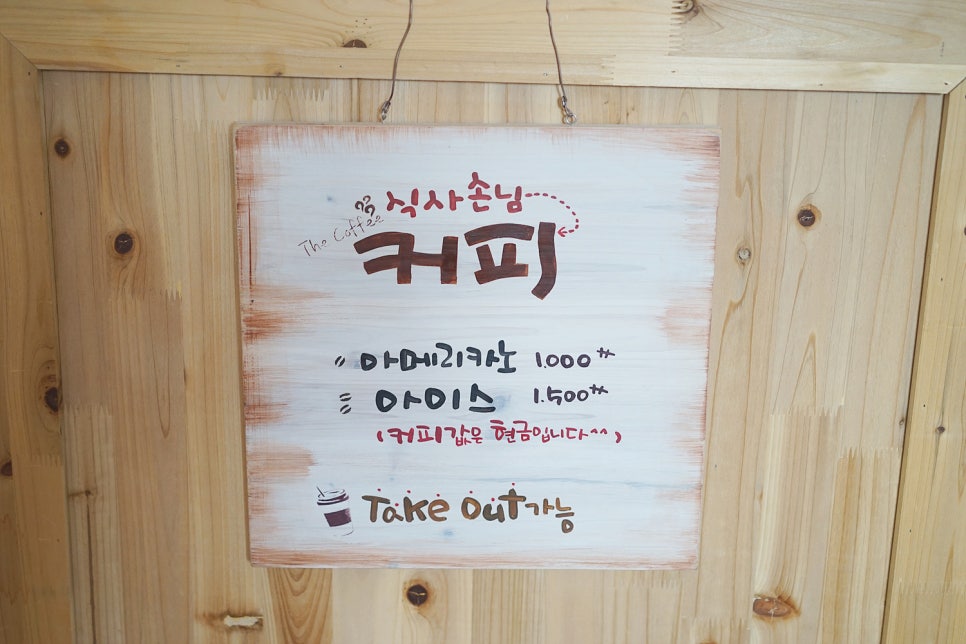 식사손님
The Coffee
커피
아메리카노 1.000원
아이스 1.500원
(커피값은 현금입니다^^)
Take Out가능